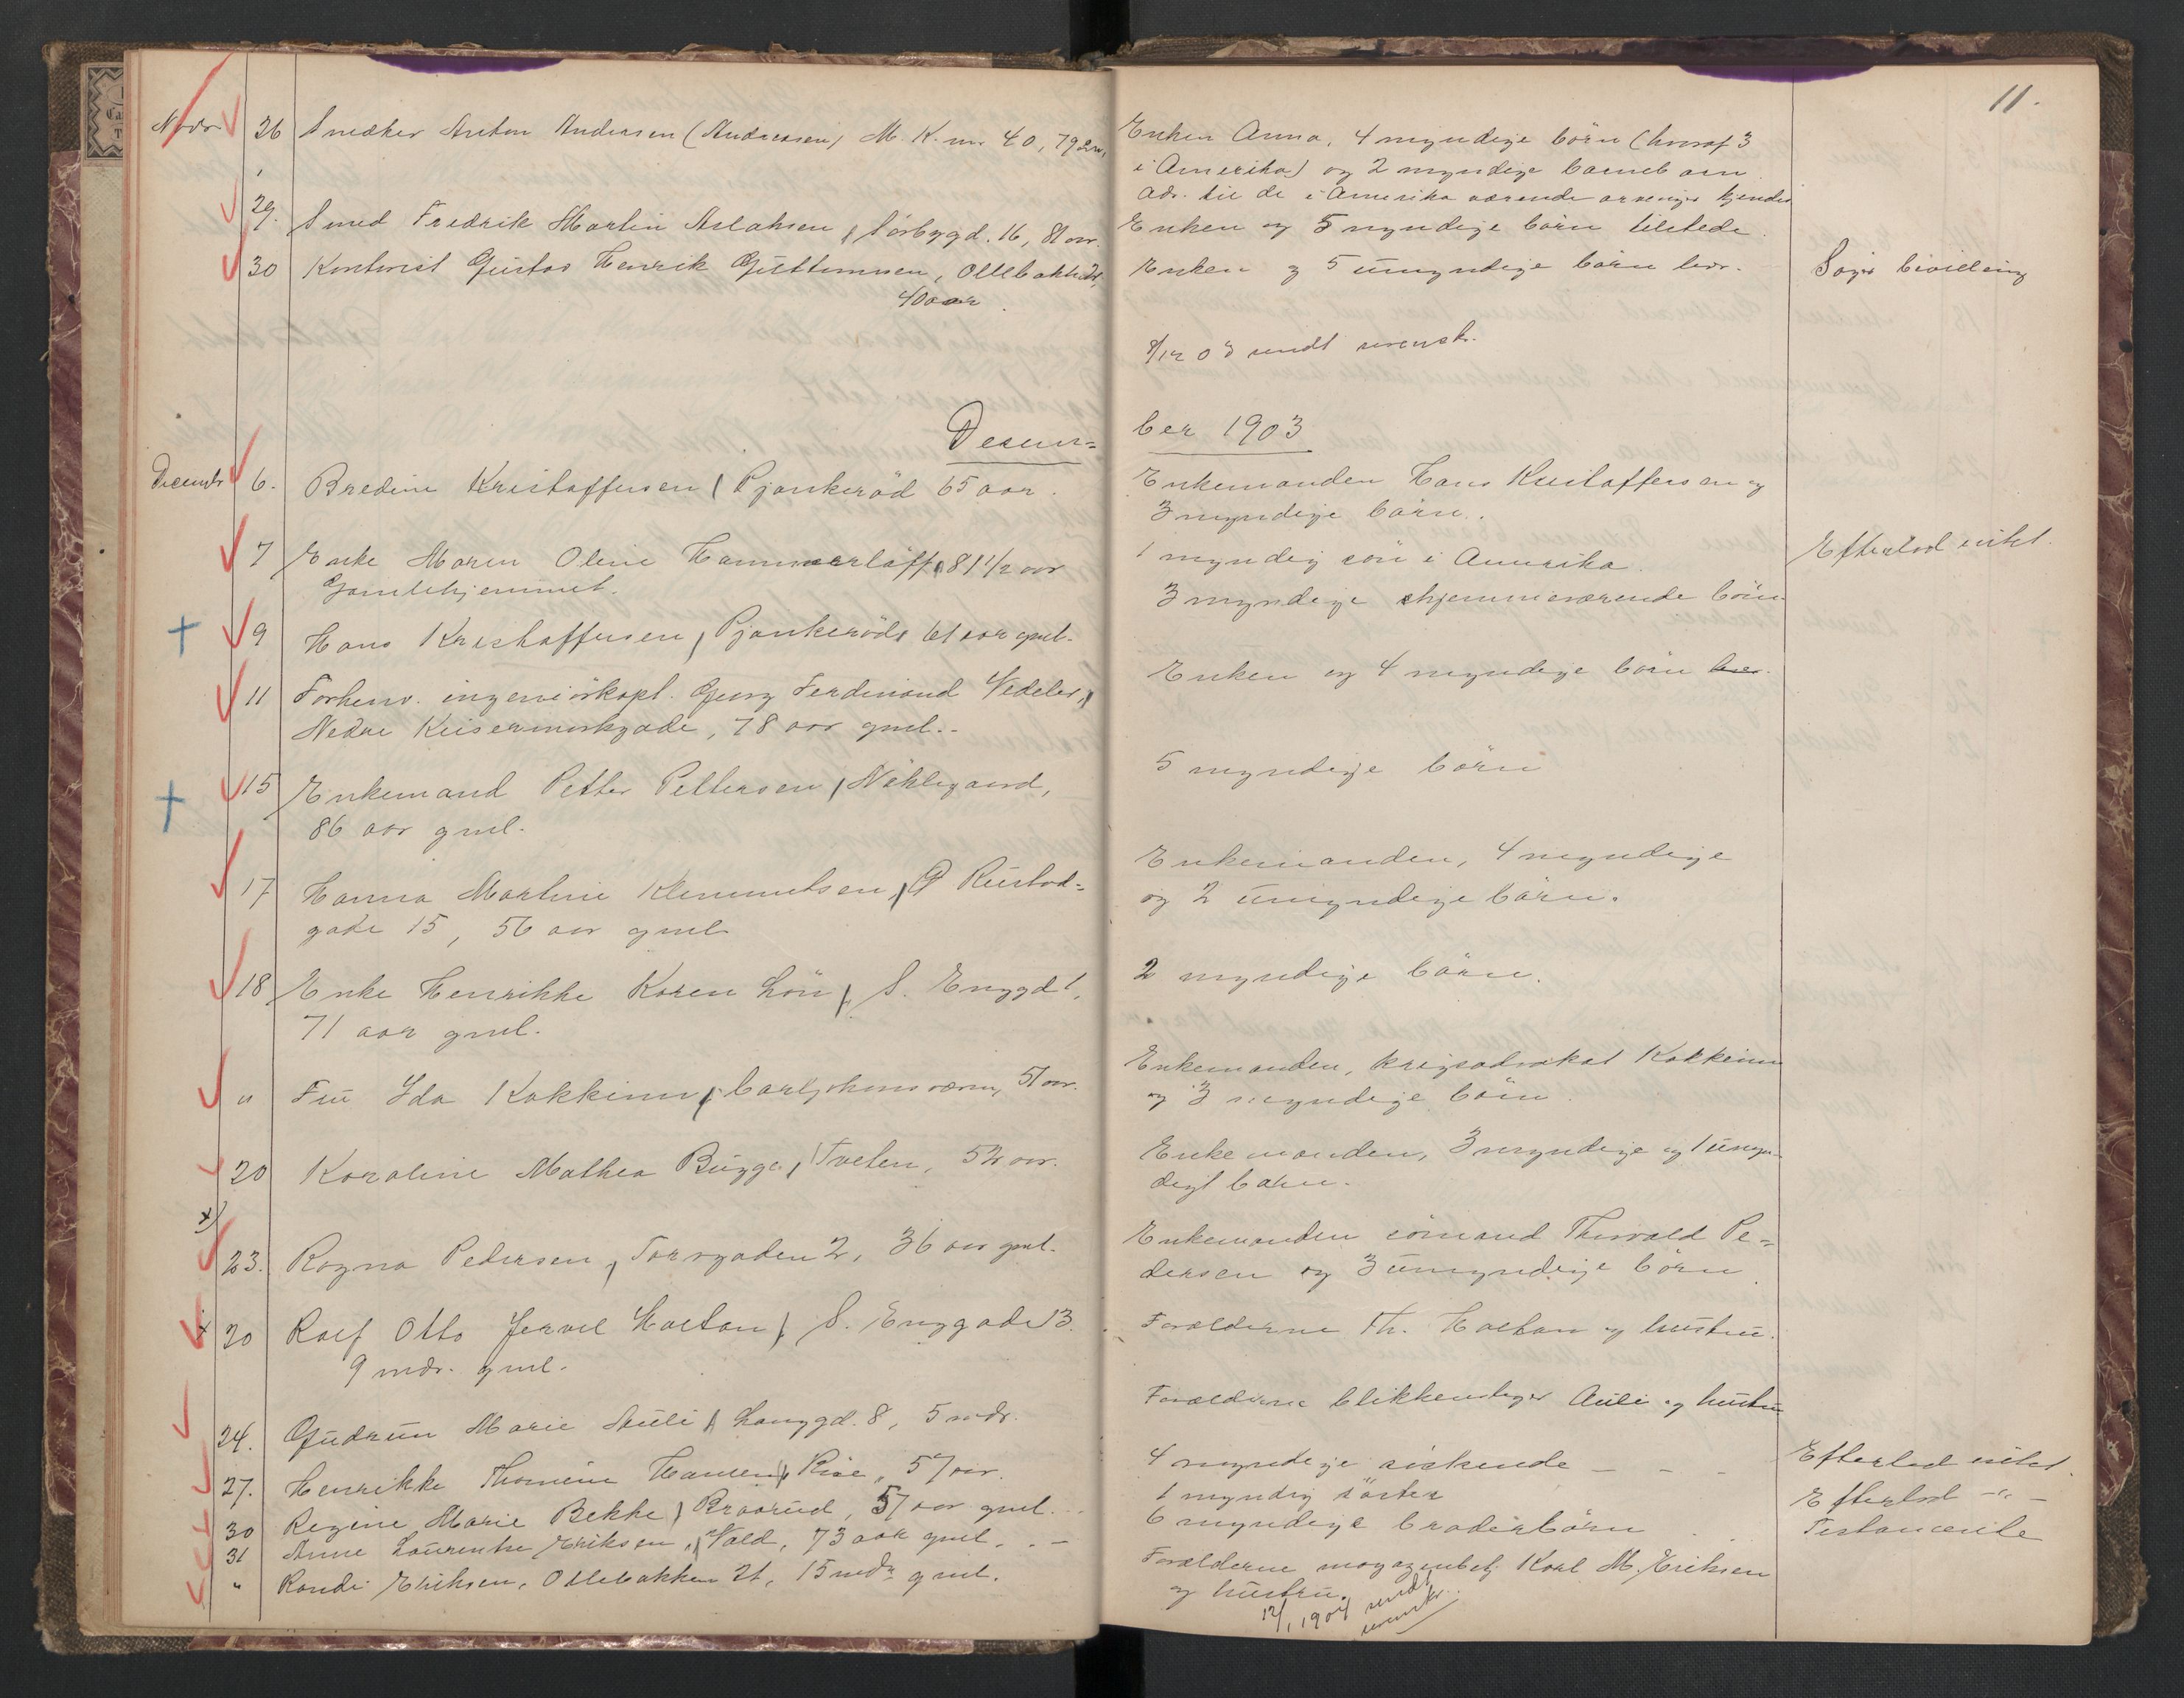 11.
Novbr. 26 Snedker Anton Andersen (Andreasen) M. K. nr 40, 79 aar.
Enken Anna, 4 myndige börn (hvoraf 3
i Amerika) og 2 myndige barnebarn
Adr. til de i Amerika værende arvinger kjendes
29. Smed Fredrik Martin Aslaksen, Sörbygd. 16, 81 aar.
Enken og 5 myndige börn tilstede
30 Kontorist Gustav Henrik Guttormsen, Ollebakken 21,
40 aar.
Enken og 5 umyndige börn her.
Söger bevilling
8/12 03 sendt
Decem=
ber 1903
Decembr 6. Bredine Kristoffersen, Pjonkeröd 65 aar.
Enkemanden Hans Kristoffersen og
3 myndige börn.
7 Enke Maren Oline Hammerlöff, 81 1/2 aar
Gamlehjemmet.
1 myndig sön i Amerika.
Efterlod intet.
9 Hans Kristoffersen, Pjonkeröd, 61 aar gml.
3 myndige hjemmeværende börn
11 Forhenv. ingeniörkapt. Georg Ferdinand Vedeler,
Nedre Keisermarkgade, 78 aar gml.
Enken og 4 myndige börn her.
15 Enkemand Petter Pettersen, Nöklegaard,
86 aar gml.
5 myndige börn
17 Hanna Martine Klemmetsen, Rustad=
gade 15, 56 aar gml
Enkemanden, 4 myndige
og 2 umyndige börn.
18 Enke Henrikke Karen Lön, S. Enggd 1,
71 aar gml.
2 myndige börn.
" Fru Ida Kokkinn, Carljohansværn, 51 aar.
Enkemanden, krigsadvokat Kokkinn
og 3 myndige börn.
20 Karoline Mathea Bugge, Tveten, 52 aar.
Enkemanden, 3 myndige og 1 umyn-
digt barn.
x)
23. Ragna Pedersen, Torvgaden 2, 36 aar gml.
Enkemanden sömand Thorvald Pe=
dersen og 3 umyndige börn
x 20 Rolf Otto Jervel Holtan, S. Enggade 13.
9 mdr. gml.
Forældrene Th. Holtan og hustru.
24. Gudrun Marie Auli, Langgd. 8, 5 mdr.
Forældrene blikkenslager Auli og hustru
27. Henrikke Thomine Hansen, Röe, 57 aar.
4 myndige söskende — — —
Efterlod intet.
30 Regine Marie Bekke, Braarud, 57 aar gml.
1 myndig söster
Efterlod —"—
31 Anne Laurentse Eriksen, Vold, 73 aar gml. . —
6 myndige broderbörn
Testamente
" Randi Eriksen, Ollebakken 21, 15 mdr gml.
Forældrene magazinbetj. Karl M. Eriksen
og hustru.
12/1 1904 sendt